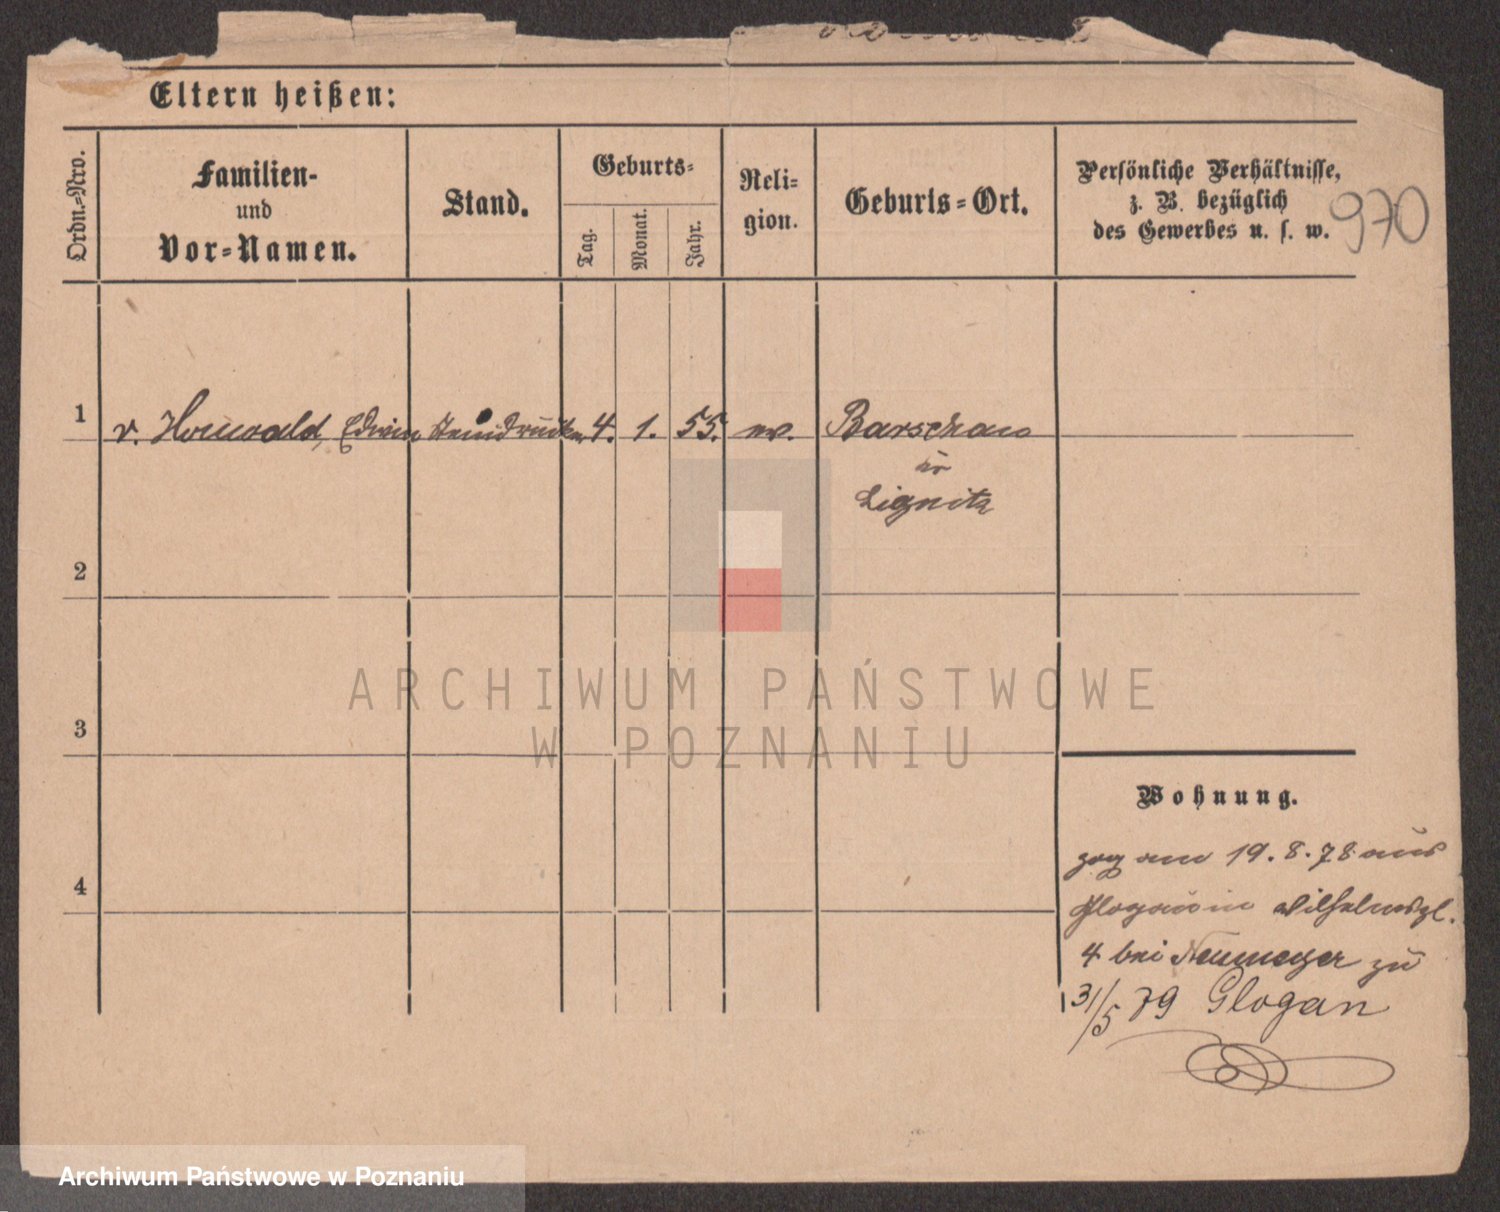 Eltern heißen:
Ordn.-Nro.
Familien-
und
Vor-Namen.
Stand.
Geburts-
Tag.
Monat.
Jahr.
Reli-
gion.
Geburts-Ort.
Persönliche Verhältnisse,
z. B. bezüglich
des Gewerbes u. s. w.
970
1 v. Howald, Edwin Steindrucker 4. 1. 55. ev. Barschau
Lignitz
2
3
4
Wohnung.
zog am 19.8.78 aus
Glogau in Wilhelmspl.
4 bei Neumeyer zu
31/5 79 Glogau
ARCHIWUM PAŃSTWOWE
W POZNANIU
Archiwum Państwowe w Poznaniu